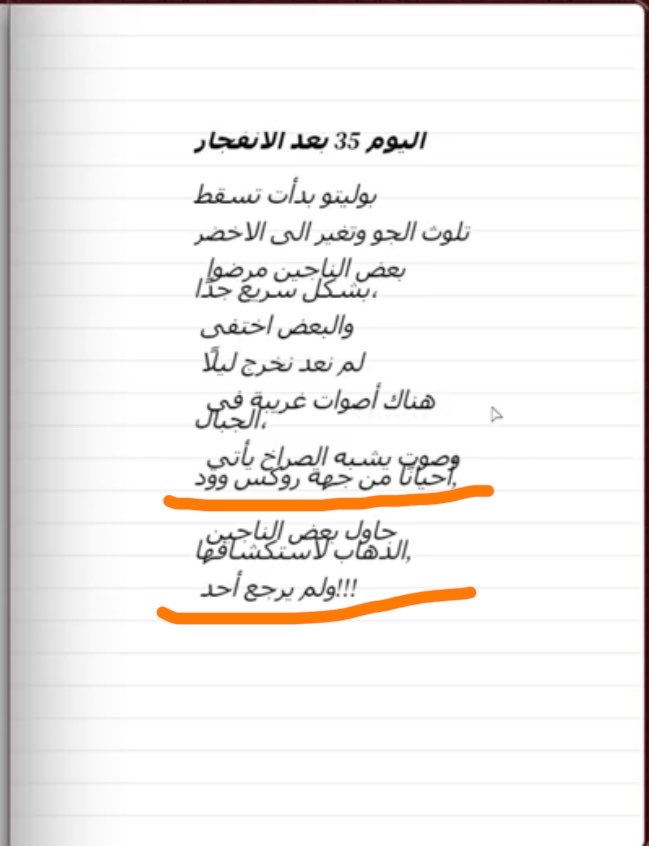 اليوم 35 بعد الانفجار
بوليتو بدأت تسقط
تلوث الجو وتغير الى الاخضر
بعض الناجين مرضوا
بشكل سريع جدًا،
والبعض اختفى
لم نعد نخرج ليلًا
هناك أصوات غريبة في
الجبال،
وصوت يشبه الصراخ يأتي
أحيانًا من جهة روكس وود,
حاول بعض الناجين
الذهاب لاستكشافها,
ولم يرجع أحد!!!